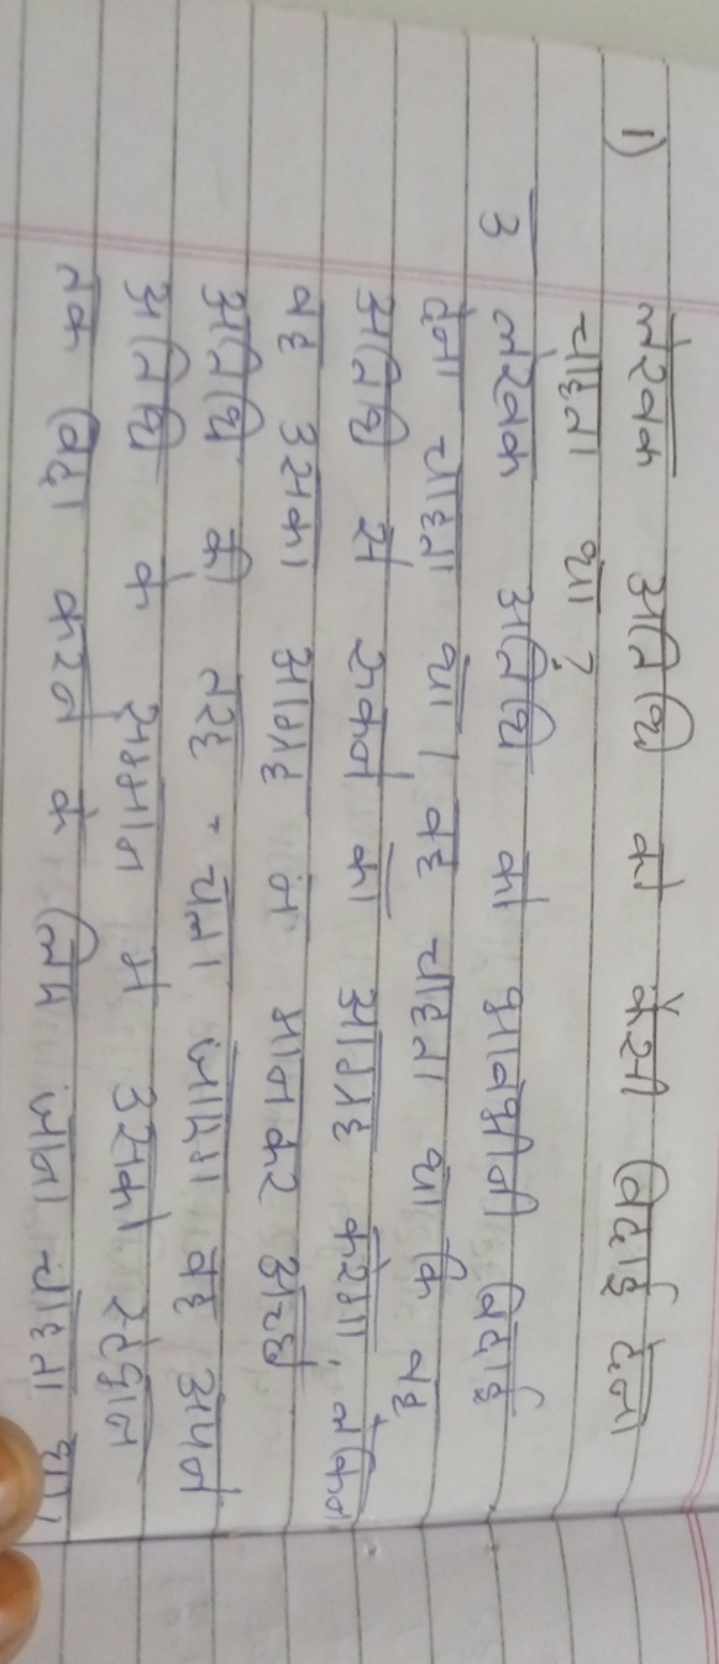 1) लेखक अतिथि को कैसी विदाई देना
चाहता था ?
उ लेखक अतिथि को भावभीनी विदाई
देना चाहता था। वह चाहता था कि वह
अतिथि से रुकने का आग्रह करेगा, लेकिन
वह उसका आग्रह न मानकर अच्छे
अतिथि की तरह चला जाएगा वह अपने
अतिथि के सम्मान में उसको स्टेशन
तक विदा करने के लिए जाना चाहता था।